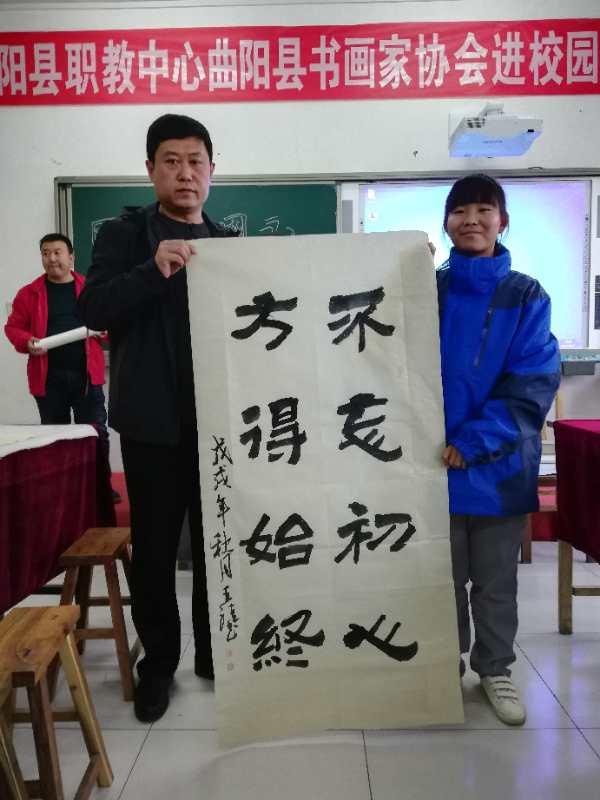 阳县职教中心曲阳县书画家协会进校园
不忘初心
方得始终
戊戌年秋月